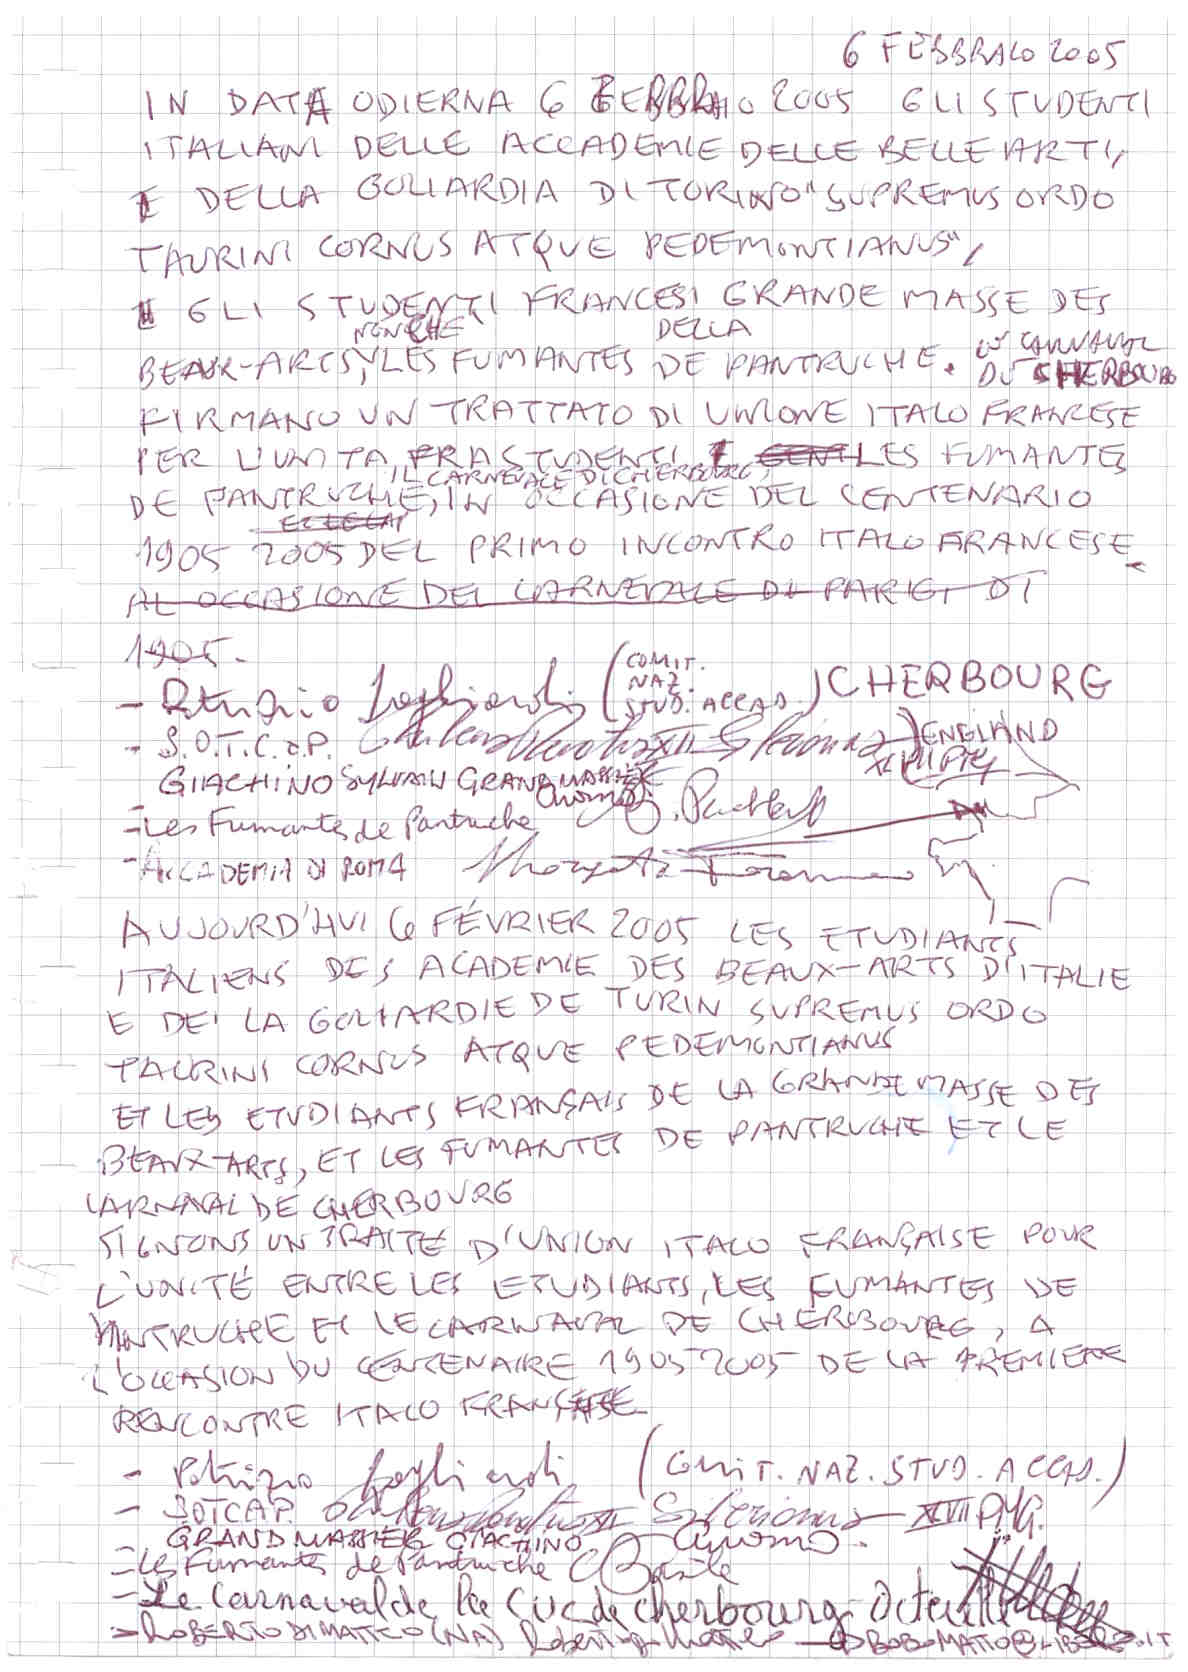 6 FEBBRAIO 2005
IN DATA ODIERNA 6 FEBBRAIO 2005 GLI STUDENTI
ITALIANI DELLE ACCADEMIE DELLE BELLE ARTI,
E DELLA GOLIARDIA DI TORINO "SUPREMUS ORDO
TAURINI CORNUS ATQUE PEDEMONTIANUS",
E GLI STUDENTI FRANCESI GRANDE MASSE DES
NONCHE DELLA
BEAUX-ARTS, LES FUMANTES DE PANTRUCHE. CARNAVAL
DU CHERBOURG
FIRMANO UN TRATTATO DI UNIONE ITALO FRANCESE
PER L'UNITA FRA STUDENTI LES FUMANTES
IL CARNEVALE DI CHERBOURG,
DE PANTRUCHE, IN OCCASIONE DEL CENTENARIO
1905 2005 DEL PRIMO INCONTRO ITALO FRANCESE
AL OCCASIONE DEL CARNEVALE DI PARIGI DI
1905.
(COMIT.
NAZ.
STUD. ACCAD.) CHERBOURG
- S.O.T.C.a.P. ENGLAND
GIACHINO SYLVAIN GRAND MASSIER
- Les Fumantes de Pantruche
- ACCADEMIA DI ROMA
AUJOURD'HUI 6 FÉVRIER 2005 LES ETUDIANTS
ITALIENS DES ACADEMIE DES BEAUX-ARTS D'ITALIE
E DE' LA GOLIARDIE DE TURIN SUPREMUS ORDO
TAURINI CORNUS ATQUE PEDEMONTIANUS
ET LES ETUDIANTS FRANÇAIS DE LA GRANDE MASSE DES
BEAUX-ARTS, ET LES FUMANTES DE PANTRUCHE ET LE
CARNAVAL DE CHERBOURG
SIGNONS UN TRAITÉ D'UNION ITALO FRANÇAISE POUR
L'UNITÉ ENTRE LES ETUDIANTS, LES FUMANTES DE
PANTRUCHE ET LE CARNAVAL DE CHERBOURG, A
L'OCCASION DU CENTENAIRE 1905 2005 DE LA PREMIERE
RENCONTRE ITALO FRANÇAISE
- Patrizio (COMIT. NAZ. STUD. ACCAD.)
- SOTCAP. XVII
GRAND MASSIER GIACHINO
- Les Fumantes de Pantruche
- Le Carnaval de la CUC de Cherbourg-Octeville
- ROBERTO DI MATTEO (NA) BOBOMATTO@LIBERO.IT